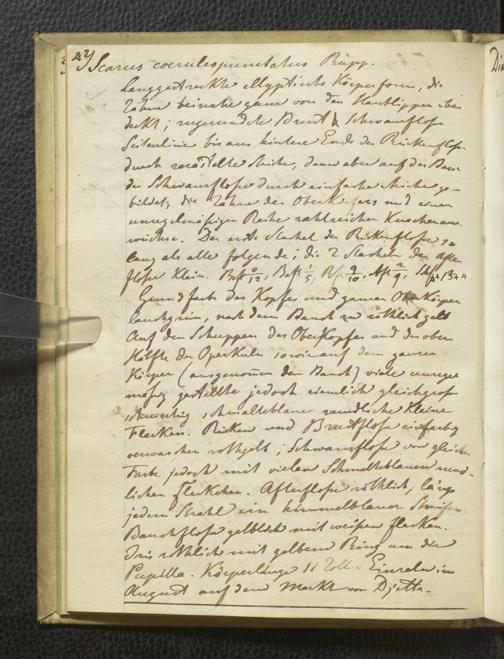 42) Scarus coeruleopunctatus Rüpp.
Langgestreckte elyptische Körperform, die
Zähne beinahe ganz von den Hautlippen be-
deckt; zugerundete Brust & Schwanzflosse
Seitenlinie bis ans hintere Ende der Rückenflosse
durch verästelte Striche, dann aber auf der Basis
der Schwanzflosse durch einfache Striche ge-
bildet; die Zähne des Oberkiefers mit einer
unregelmäsigen Reihe zahlreicher Knochenaus-
wüchse. Der erste Stachel der Rückenflosse so
lang als alle folgende; die 2 Stacheln der After
flosse klein.
Grundfarbe des Kopfes und ganzen Körper
, nach dem Bauch zu röthlich gelb
Auf den Schuppen des Oberkopfes und der obern
Hälfte der Operkeln sowie auf dem ganzen
Körper (ausgenommen den Bauch) viele unregel
mäsig gestellte jedoch ziemlich gleichgrosse
schmalteblaue rundliche kleine
Flecken. Rücken und Brustflosse einfarbig
verwaschen rothgelb; Schwanzflosse von gleicher
Farbe jedoch mit vielen Schmalteblauen rund-
lichen Fleckchen. Afterflosse röthlich, längs
jedem Strahl ein himmelblauer Streifen
Bauchflosse gelblich mit weisen Flecken.
Iris röthlich mit gelbem Ring um die
Pupilla. Körperlänge 11 Zoll. Einzeln im
August auf dem Markt von Djetta.